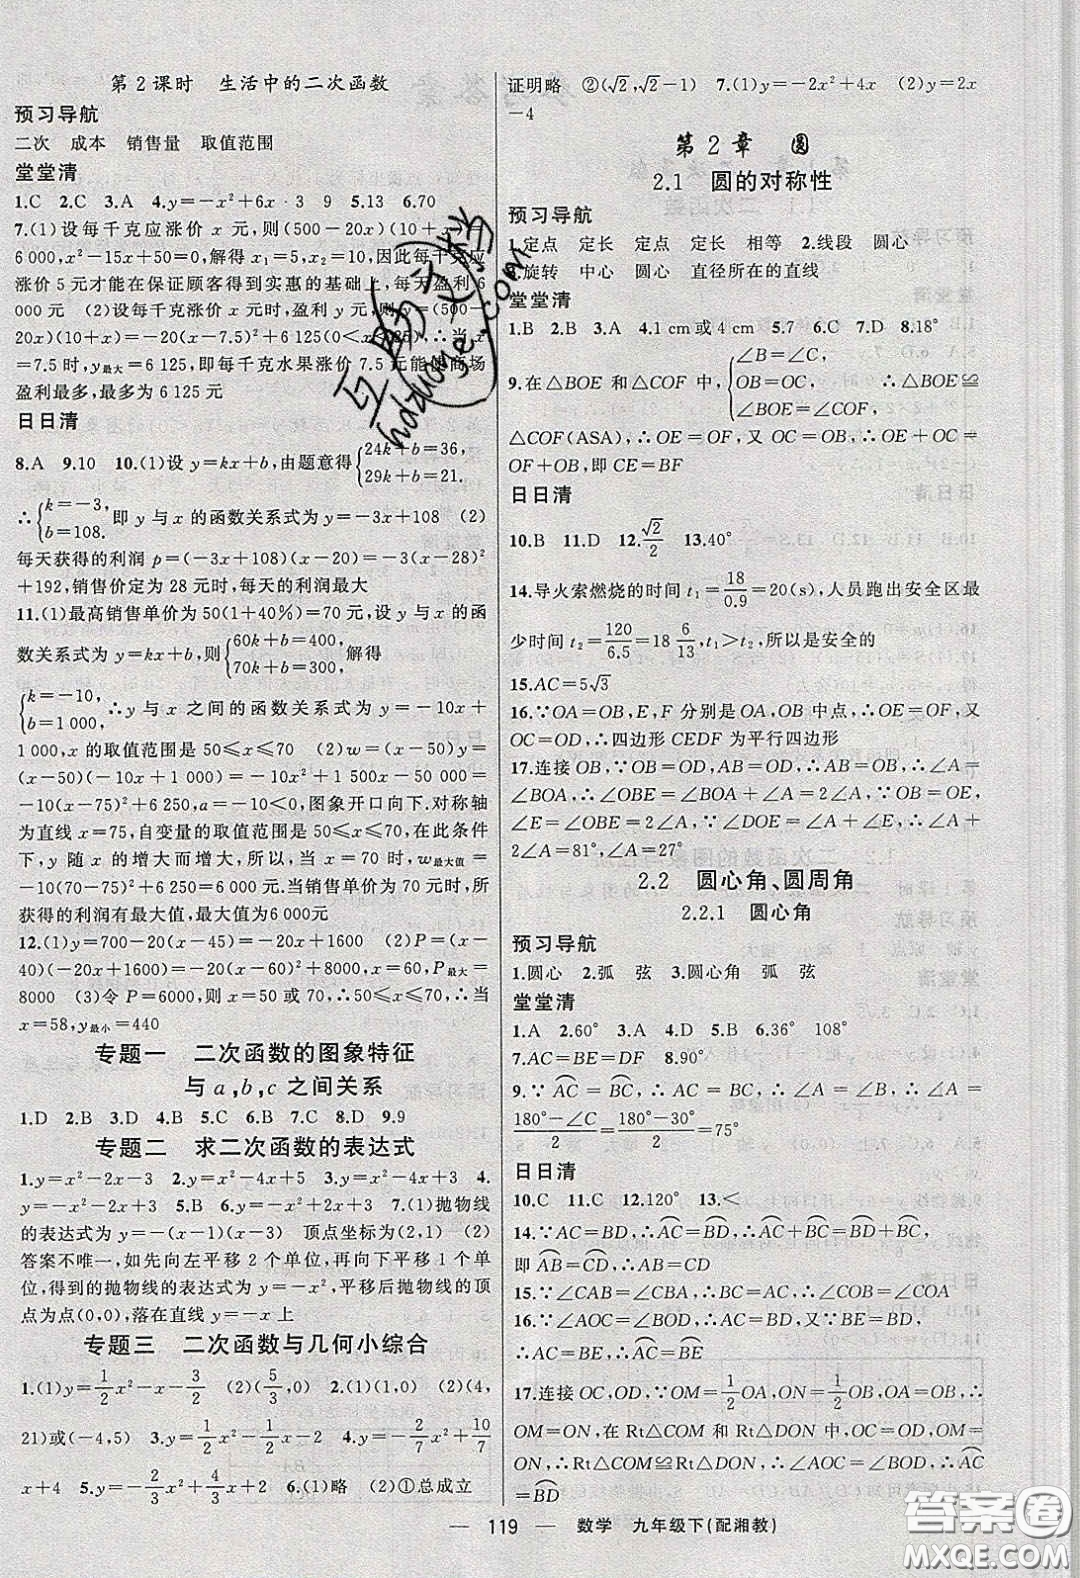 第2课时　生活中的二次函数
预习导航
二次　成本　销售量　取值范围
堂堂清
1.C　2.C　3.A　4.y=-x²+6x·3　9　5.13　6.70
7.(1)设每千克应涨价 x 元,则(500-20x)(10+x)=
6 000,x²-15x+50=0,解得 x₁=5,x₂=10,因此每千克应
涨价 5 元才能在保证顾客得到实惠的基础上,每天盈利 6
000 元　(2)设每千克涨价 x 元时,盈利 y 元,则 y=(500-
20x)(10+x)=-20(x-7.5)²+6 125(0<x<25),∴当 x
=7.5 时,y最大=6 125,即每千克水果涨价 7.5 元能使商场
盈利最多,最多为 6 125 元
日日清
8.A　9.10　10.(1)设 y=kx+b,由题意得{24k+b=36, 29k+b=21.
∴{k=-3, b=108. 即 y 与 x 的函数关系式为 y=-3x+108　(2)
每天获得的利润 p=(-3x+108)(x-20)=-3(x-28)²
+192,销售价定为 28 元时,每天的利润最大
11.(1)最高销售单价为 50(1+40%)=70 元,设 y 与 x 的函
数关系式为 y=kx+b,则{60k+b=400, 70k+b=300, 解得
{k=-10, b=1 000, ∴y 与 x 之间的函数关系式为 y=-10x+
1 000,x 的取值范围是 50≤x≤70　(2)w=(x-50)y=
(x-50)(-10x+1 000)=-10x²+1 500x-50 000=
-10(x-75)²+6 250,a=-10<0,图象开口向下.对称轴
为直线 x=75,自变量的取值范围是 50≤x≤70,在此条件
下,y 随 x 的增大而增大,所以,当 x=70 时,w最大值=
-10(70-75)²+6250=6 000.当销售单价为 70 元时,所
获得的利润有最大值,最大值为 6 000元
12.(1)y=700-20(x-45)=-20x+1600　(2)P=(x-
40)(-20x+1600)=-20(x-60)²+8000,x=60,P最大=
8000　(3)令 P=6000,则 x=50 或 70,∴x≤58,∴当
x=58,y最小=440
专题一　二次函数的图象特征
与 a,b,c 之间关系
1.D　2.B　3.D　4.B　5.C　6.B　7.C　8.D　9.9
专题二　求二次函数的表达式
1.y=x²-2x-3　2.y=x²-4x+5　3.y=x²-4x+3　4.
y=-x²-2x+3　5.y=x²-1　6.y=-x²+2x+3　7.(1)抛物线
的表达式为 y=-(x-1)(x-3)　顶点坐标为(2,1)　(2)
答案不唯一,如先向左平移 2 个单位,再向下平移 1 个单
位,得到的抛物线的表达式为 y=-x²,平移后抛物线的顶
点为(0,0),落在直线 y=-x 上
专题三　二次函数与几何小综合
1.(1)y=1/2x²-x-3/2　(2)(5/3,0)　2.(1)(1,0)　(2)(4,
21)或(-4,5)　3.y=1/2x²-x+1/2　4.y=-2/7x²+10/7
x+4　5.y=-2/3x²+4/3x+2　6.(1)略　(2)①总成立
证明略　②(√2,√2-1)　7.(1)y=-2x²+4x　(2)y=2x
-4
第 2 章　圆
2.1　圆的对称性
预习导航
1.定点　定长　定点　定长　相等　2.线段　圆心
3.旋转　中心　圆心　直径所在的直线
堂堂清
1.B　2.B　3.A　4.1 cm或 4 cm　5.7　6.C　7.D　8.18°
9.在△BOE 和△COF 中,{∠B=∠C, OB=OC, ∠BOE=∠COF, ∴△BOE≌
△COF(ASA),∴OE=OF,又 OB=OC,∴OE+OC=
OF+OB,即 CE=BF
日日清
10.B　11.D　12.√2/2　13.40°
14.导火索燃烧的时间 t₁=18/0.9=20(s),人员跑出安全区最
少时间 t₂=120/6.5=18 6/13,t₁>t₂,所以是安全的
15.AC=5√3
16.∵OA=OB,E,F 分别是 OA,OB 中点,∴OE=OF,又
OC=OD,∴四边形 CEDF 为平行四边形
17.连接 OB,∵OB=OD,AB=OD,∴AB=OB,∴∠A=
∠BOA,∴∠OBE=∠BOA+∠A=2∠A,∵OB=OE,
∠E=∠OBE=2∠A,∵∠DOE=∠A+∠E,∴∠A+
2∠A=81°,∠A=27°
2.2　圆心角、圆周角
2.2.1　圆心角
预习导航
1.圆心　2.弧　弦　3.圆心角　弧　弦
堂堂清
1.A　2.60°　3.A　4.D　5.B　6.36°　108°
7.AC=BE=DF　8.90°
9.∵AC=BC,∴AC=BC,∴∠A=∠B,∴∠A=
180°-∠C/2=180°-30°/2=75°
日日清
10.C　11.C　12.120°　13.<
14.∵AC=BD,∴AC=BD,∴AC+BC=BD+BC,
即 AB=CD,∴AB=CD
15.∵∠CAB=∠CBA,∴BC=AC,∴∠COB=∠COA
16.∵∠AOC=∠BOC,∴AC=BC,又∵AB=BC,∴
AC=AB=BC
17.连接 OC,OD,∵OM=1/2OA,ON=1/2OB,OA=OB,∴
OM=ON,在 Rt△COM 和Rt△DON 中,OC=OD,
OM=ON,∴Rt△COM≌Rt△DON,∴∠AOC=∠BOD,∴AC
=BD
119　数学　九年级下(配湘教)
互助文档
hdzuoye.com
答案圈
MXQE.COM